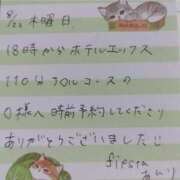 8/22 木曜日。
18時からホテルエックス
110分コースの
O様へ 時前予約してくださり
ありがとうございました!!
fiesta